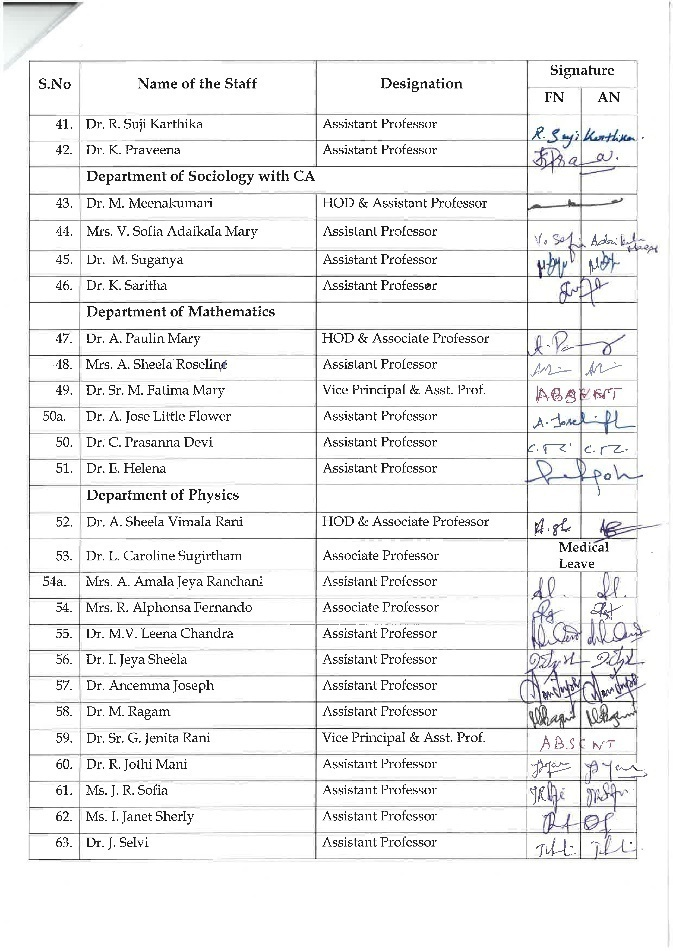 S.No Name of the Staff Designation Signature
FN AN
41. Dr. R. Suji Karthika Assistant Professor R. Suji Karthika.
42. Dr. K. Praveena Assistant Professor
Department of Sociology with CA
43. Dr. M. Meenakumari HOD & Assistant Professor
44. Mrs. V. Sofia Adaikala Mary Assistant Professor
45. Dr. M. Suganya Assistant Professor
46. Dr. K. Saritha Assistant Professor
Department of Mathematics
47. Dr. A. Paulin Mary HOD & Associate Professor
48. Mrs. A. Sheela Roseline Assistant Professor
49. Dr. Sr. M. Fatima Mary Vice Principal & Asst. Prof. ABSENT
50a. Dr. A. Jose Little Flower Assistant Professor
50. Dr. C. Prasanna Devi Assistant Professor
51. Dr. E. Helena Assistant Professor
Department of Physics
52. Dr. A. Sheela Vimala Rani HOD & Associate Professor
53. Dr. L. Caroline Sugirtham Associate Professor Medical
Leave
54a. Mrs. A. Amala Jeya Ranchani Assistant Professor
54. Mrs. R. Alphonsa Fernando Associate Professor
55. Dr. M.V. Leena Chandra Assistant Professor
56. Dr. I. Jeya Sheela Assistant Professor
57. Dr. Ancemma Joseph Assistant Professor
58. Dr. M. Ragam Assistant Professor
59. Dr. Sr. G. Jenita Rani Vice Principal & Asst. Prof. ABSENT
60. Dr. R. Jothi Mani Assistant Professor
61. Ms. J. R. Sofia Assistant Professor
62. Ms. I. Janet Sherly Assistant Professor
63. Dr. J. Selvi Assistant Professor